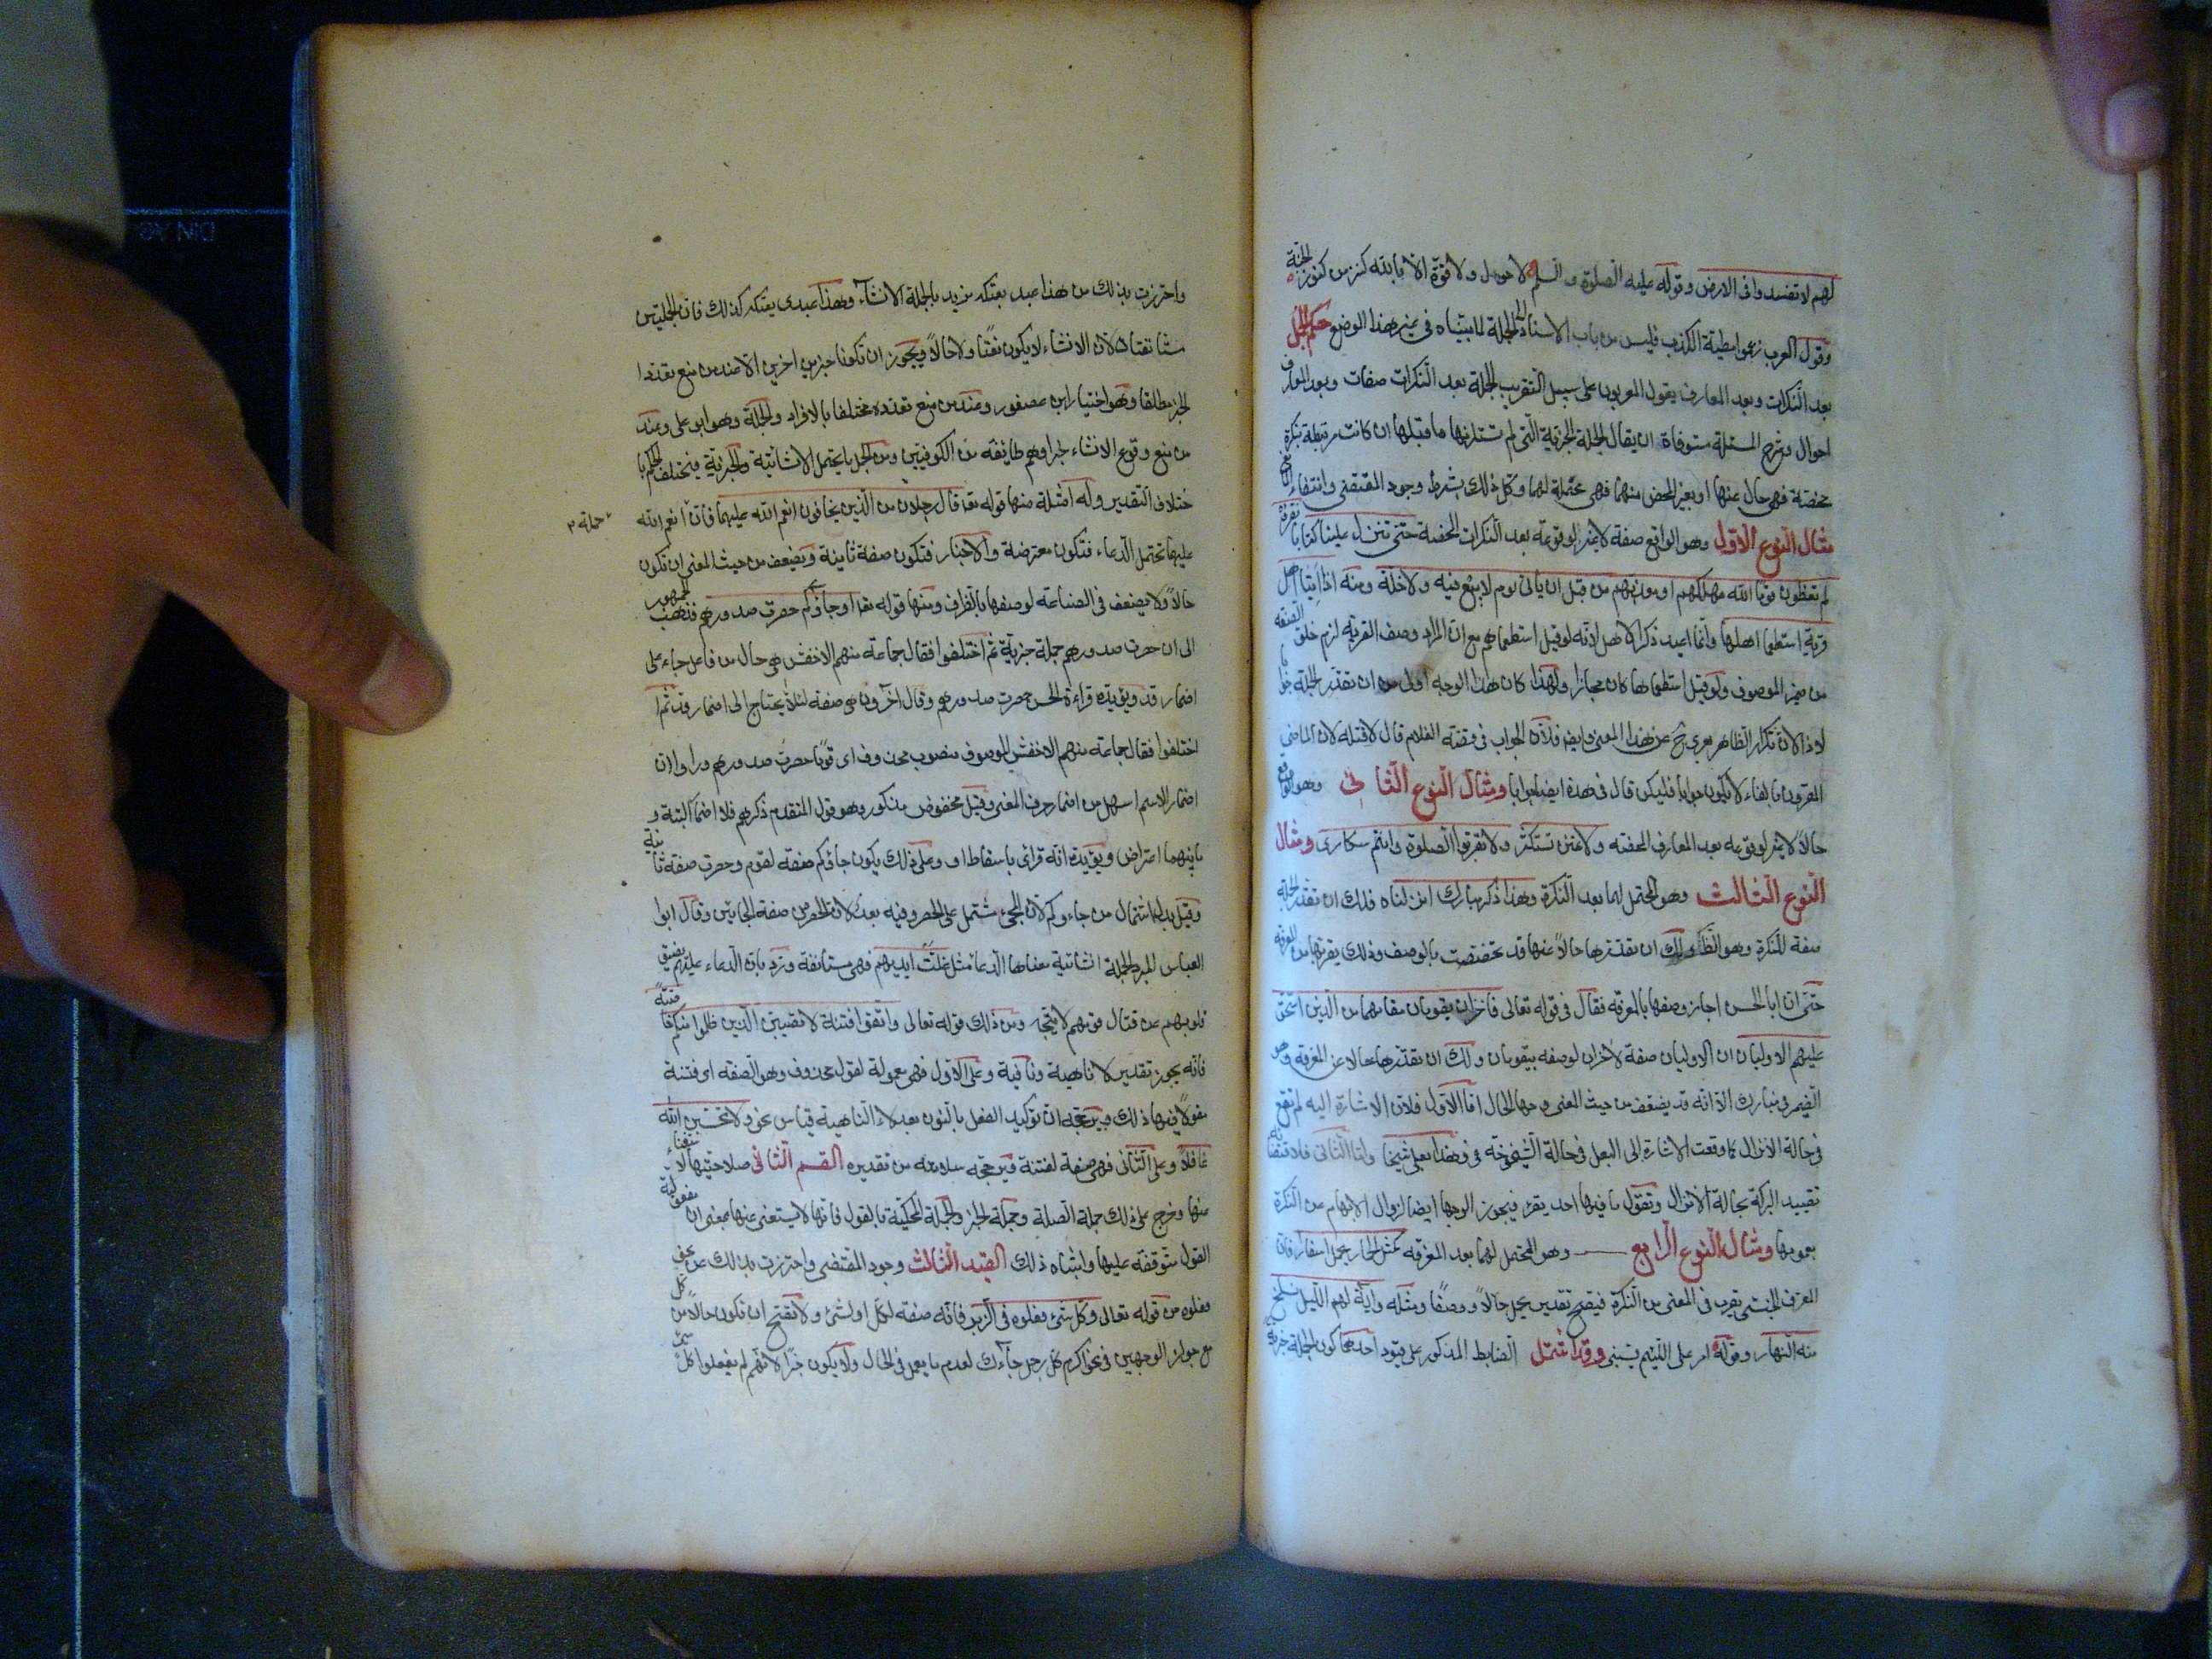 لهم لا تفسدوا فى الارض وقوله عليه الصلوة والسلم لا حول ولا قوة الا بالله كنز من كنوز الجنة
وقول العرب زعموا مطية الكذب فليس من باب الاسناد الى الجملة لما بيناه فى غير هذا الموضع حكم الجمل
بعد النكرات وبعد المعارف يقول المعربون على سبيل التقريب الجملة بعد النكرات صفات وبعد المعارف
احوال وشرح المسئلة مستوفاة ان يقال الجملة الخبرية التى لم تستلزمها ما قبلها ان كانت مرتبطة بنكرة
محضة فهى حال عنها او بغير المحض منهما فهى محتملة لهما وكل ذلك بشرط وجود المقتضى وانتفاء المانع
مثال النوع الاول وهو الواقع صفة لا غير لوقوعه بعد النكرات المحضة حتى تنزل علينا كتابا نقرؤه
لم تعظون قوما الله مهلكهم او معذبهم من قبل ان يأتى يوم لا بيع فيه ولا خلة ومنه اذا اتيا اهل
قرية استطعما اهلها وانما اعيد ذكر الاهل لانه لو قيل استطعماهم مع ان المراد وصف القرية لزم خلو الصفة
من ضمير الموصوف ولو قيل استطعماها كان مجازا ولهذا كان هذا الوجه اولى من ان تقدر الجملة جوابا
لاذا لان تكرار الظاهر يعرى ح عن هذا المعنى وايضا فلان الجواب فى قصة الغلام قال لا قتله لان الماضى
المقرون بالفاء لا يكون جوابا فليكن قال فى هذه ايضا جوابا ومثال النوع الثانى وهو الواقع
حالا لا غير لوقوعه بعد المعارف المحضة ولا تمنن تستكثر ولا تقربوا الصلوة وانتم سكارى ومثال
النوع الثالث وهو المحتمل لهما بعد النكرة وهذا ذكر مبارك انزلناه فلك ان تقدر الجملة
صفة للنكرة وهو الظ ولك ان تقدرها حالا عنها قد تخصصت بالوصف وذلك يقربها من المعرفة
حتى ان ابا الحسن اجاز وصفها بالمعرفة فقال فى قوله تعالى فاخران يقومان مقامهما من الذين استحق
عليهم الاوليان ان الاوليان صفة لاخران لوصفه بيقومان ولك ان تقدرها حالا عن المعرفة وهو
الضمير فى مبارك الا انه قد يضعف من حيث المعنى وجها الحال اما الاول فلان الاشارة اليه لم تقع
فى حالة الانزال كما وقعت الاشارة الى البعل فى حالة الشيخوخة فى وهذا بعلى شيخا واما الثانى فلاقتضائه
تقييد البركة بحالة الانزال وتقول ما فيها احد يقرء فيجوز الوجها ايضا لزوال الابهام عن النكرة
بعمومها ومثال النوع الرابع وهو المحتمل لهما بعد المعرفة كمثل الحمار يحمل اسفارا فان
المعرف الجنسى يقرب فى المعنى من النكرة فيصح تقدير يحمل حالا ووصفا ومثله واية لهم الليل نسلخ
منه النهار وقوله امر على اللئيم يسبنى وقد اشتمل الضابط المذكور على قيود احدها كون الجملة خبرية
واحترزت بذلك من هذا عبد بعتكه نريد بالجملة الانشاء وهذا عبدى بعتكه كذلك فان الجملتين
مستانفتان لان الانشاء لا يكون نعتا ولا حالا ويجوز ان تكونا خبرين اخرين الا عند من منع تعدد
الخبر مطلقا وهو اختيار ابن عصفور وعند من منع تعدده مختلفا بالافراد والجملة وهو ابو على وعند
من منع وقوع الانشاء خبرا وهم طائفة من الكوفيين ومن الجمل ما يحتمل الانشائية والخبرية فيختلف الحكم با
ختلاف التقدير وله امثلة منها قوله تعا قال رجلان من الذين يخافون انعم الله عليهما فان انعم الله
جملة
عليهما تحتمل الدعاء فتكون معترضة والاخبار فتكون صفة ثانية ويضعف من حيث المعنى ان تكون
حالا ولا يضعف فى الصناعة لوصفها بالظرف ومنها قوله تعا او جاؤكم حصرت صدورهم فذهب الجمهور
الى ان حصرت صدورهم جملة خبرية ثم اختلفوا فقال جماعة منهم الاخفش هى حال من فاعل جاء على
اضمار قد ويؤيده قراءة الحسن حصرت صدورهم وقال آخرون هى صفة لئلا يحتاج الى اضمار قد ثم
اختلفوا فقال جماعة منهم الاخفش الموصوف منصوب محذوف اى قوما حصرت صدورهم وراوا ان
اضمار الاسم اسهل من اضمار حرف المعنى وقيل مخفوض مذكور وهو قول المتقدم ذكرهم فلا اضمار البتة و
ما بينهما اعتراض ويؤيده انه قرائ باسقاط او وعلى ذلك يكون جاؤكم صفة لقوم وحصرت صفة ثانية
وقيل بدل اشتمال من جاءوكم لان المجئ مشتمل على الحصر وفيه بعد لان الحصر من صفة الجائين وقال ابو
العباس المبرد الجملة انشائية معناها الدعا مثل غلت ايديهم فهى مستأنفة ورد بان الدعاء عليهم بضيق
قلوبهم عن قتال قومهم لا يتجه ومن ذلك قوله تعالى واتقوا فتنة لا تصيبن الذين ظلموا منكم
فانه يجوز تقدير لا ناهية ونافية وعلى الاول فهى مقولة لقول محذوف وهو الصفة اى فتنة
مقولا فيها ذلك ويرجحه ان توكيد الفعل بالنون بعد لا الناهية قياس نحو ولا تحسبن الله
غافلا وعلى الثانى فهى صفة لفتنة ويرجحه سلامته من تقدير القسم الثانى صلاحيتها للاستغناء
عنها وخرج على ذلك جملة الصلة وجملة الخبر والجملة المحكية بالقول فانها لا يستغنى عنها بمعنى ان مفعولية
القول متوقفة عليها واشباه ذلك القيد الثالث وجود المقتضى واحترزت بذلك عن نحو
فعلوه من قوله تعالى وكل شئ فعلوه فى الزبر فانه صفة لكل او لشئ ولا يصح ان تكون حالا من كل
مع جواز الوجهين فى نحو اكرم كل رجل جاءك لعدم ما يعمل فى الحال ولا يكون خبرا لانهم لم يفعلوا كل شئ